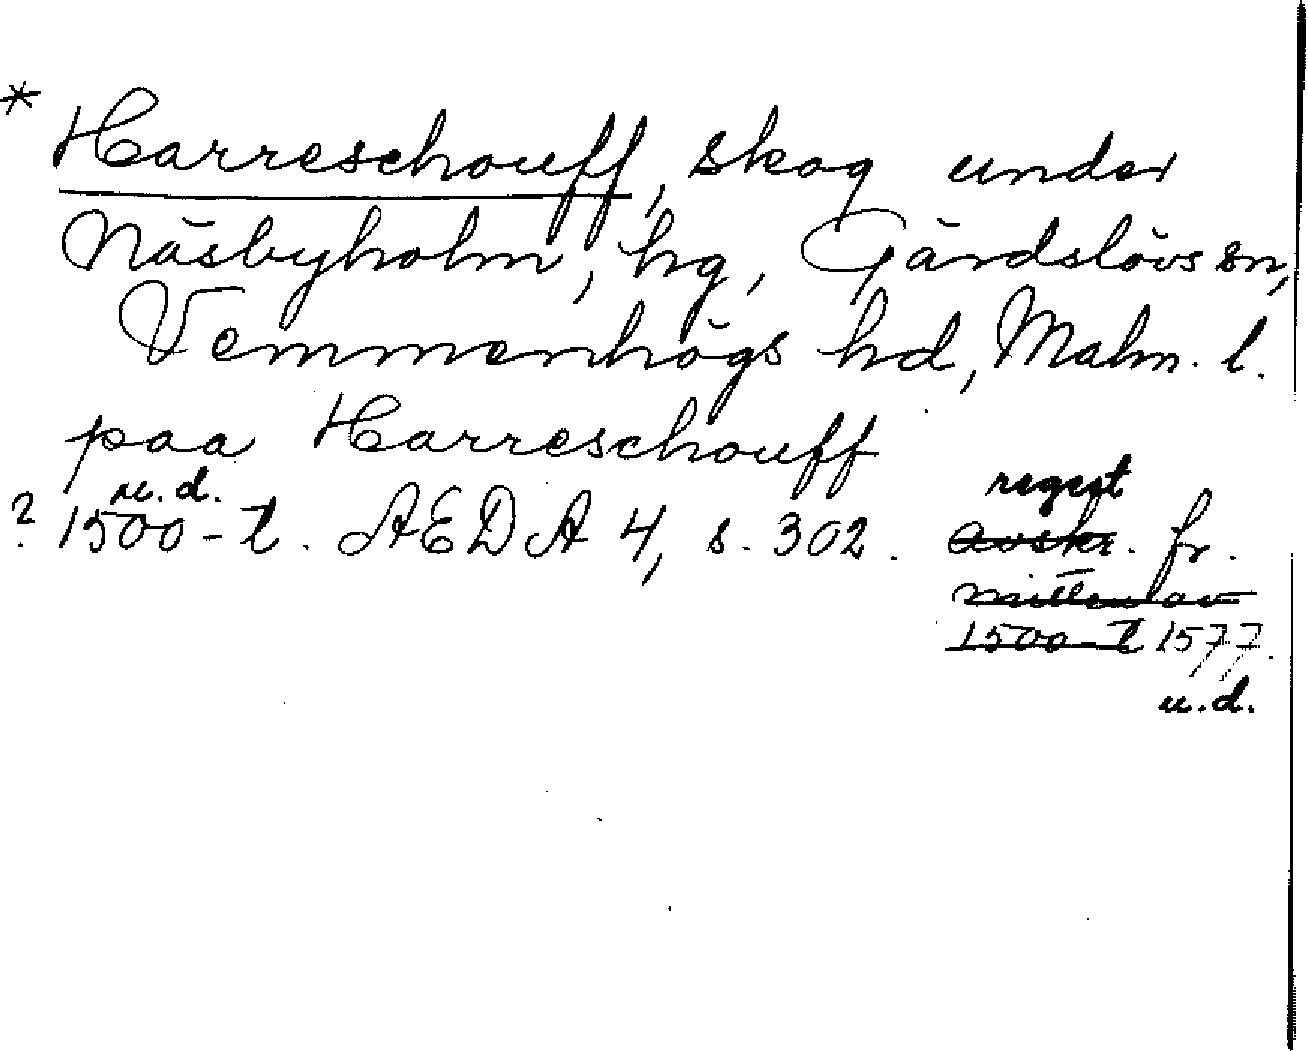 * Harreschouff, skog under
Näsbyholm, hg, Gärdslövs sn,
Vemmenhögs hd, Malm. l.
paa Harreschouff
u. d.
regest
? 1500-t. AEDA 4, s. 302. avskr. fr.
mitten av
1500-t 1577.
u.d.